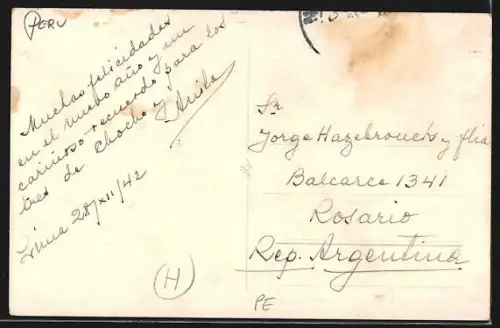 PERU
Muchas felicidades
en el nuevo año y un
cariñoso recuerdo para los
tres de Chocho y
Anita
Lima 28/XII/42
H
Sr
Jorge Hazebrouck y flia
Balcarce 1341
Rosario
Rep. Argentina
PE